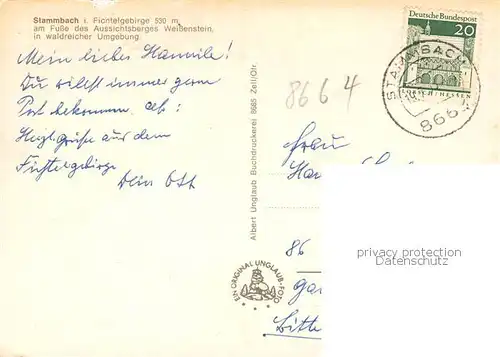 Stammbach i. Fichtelgebirge 530 m,
am Fuße des Aussichtsberges Weißenstein,
in waldreicher Umgebung
Mein liebes Hannile!
Du willst immer gern
Post bekommen, also:
Herzl. Grüße aus dem
Fichtelgebirge
Dein Ott
Albert Unglaub Buchdruckerei 8665 Zell/Ofr.
EIN ORIGINAL UNGLAUB-FOTO
8664
Deutsche Bundespost
20
LORSCH/HESSEN
STAMMBACH
8664
Frau
86
privacy protection
Datenschutz
Bitte